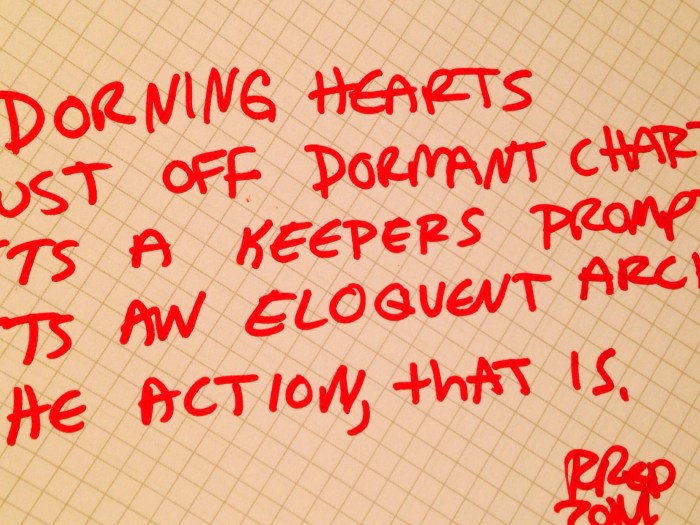 DORNING HEARTS
UST OFF DORMANT CHART
TS A KEEPERS PROMP
TS AN ELOQUENT ARCH
HE ACTION, thAT IS.